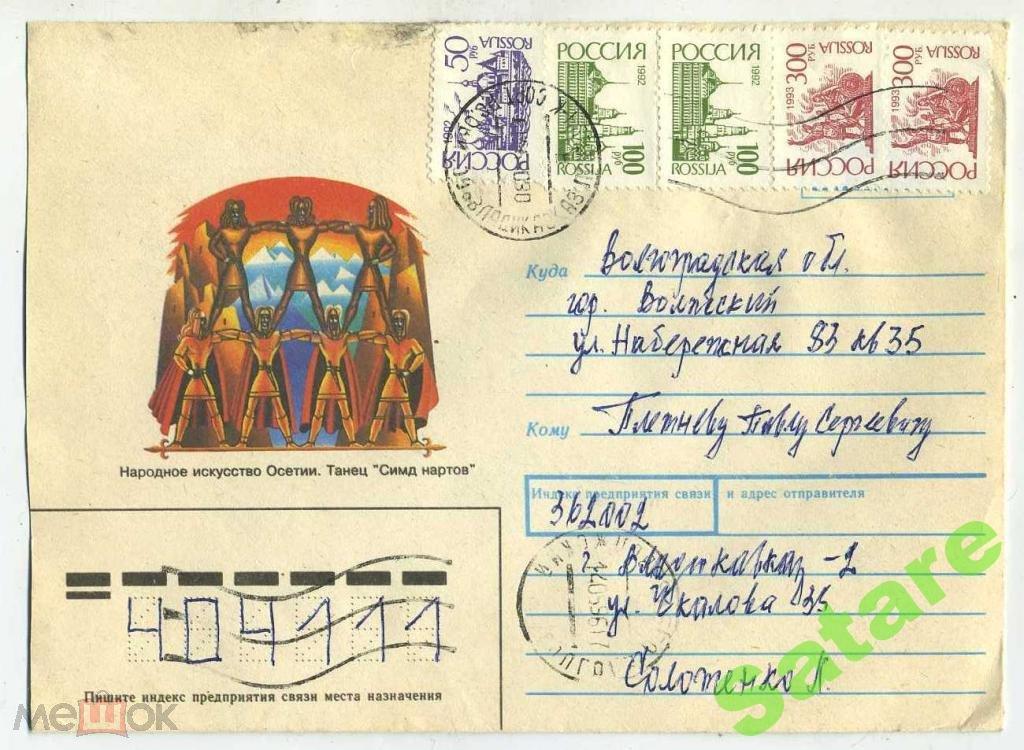 50 РУБ ROSSIJA 1992 РОССИЯ
РОССИЯ 1992 100 руб ROSSIJA
РОССИЯ 1992 100 руб ROSSIJA
300 РУБ ROSSIJA 1993 РОССИЯ
300 РУБ ROSSIJA 1993 РОССИЯ
Куда Волгоградская обл.
гор. Волжский
ул. Набережная 83 кв 35
Кому Плетневу Павлу Сергеевичу
Народное искусство Осетии. Танец "Симд нартов"
Индекс предприятия связи и адрес отправителя
362002
г. Владикавказ-2
ул. Чкалова 35
Соложенко Л.
404111
Пишите индекс предприятия связи места назначения
мешок
satare